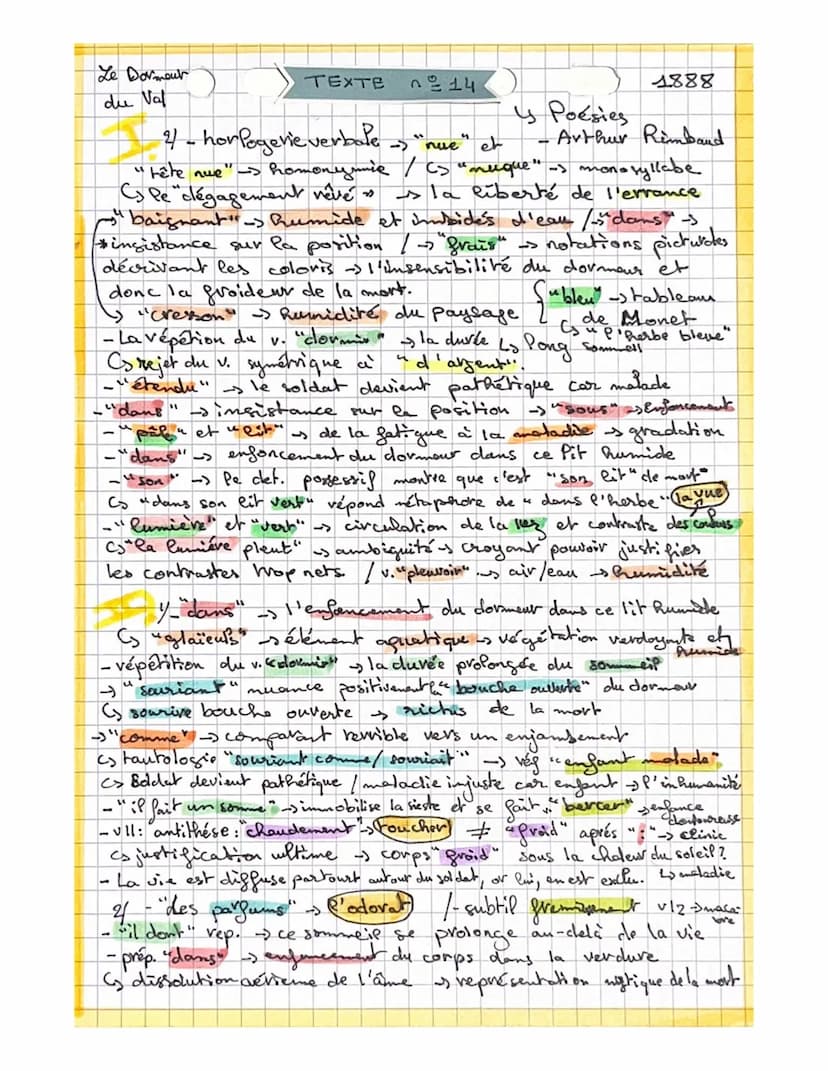 Le Dormeur du Val
TEXTE n°14
1888
↳ Poésies
- Arthur Rimbaud
I. 2/ - horlogerie verbale → "nue" et
"tête nue" → homonymie / ↳ "nuque" → monosyllabe
↳ le "dégagement rêvé" → la liberté de l'errance
→ "baignant" → humide et imbibés d'eau / → "dans" →
* insistance sur la position / → "frais" → notations picturales
décrivant les coloris → l'insensibilité du dormeur et
donc la froideur de la mort.
→ "cresson" → humidité du paysage
{ "bleu" → tableau
de Monet
↳ "l'herbe bleue"
- La répétition du v. "dormir" → la durée ↳ long sommeil
↳ rejet du v. symétrique à "d'argent".
- "étendu" → le soldat devient pathétique car malade
- "dans" → insistance sur la position → "sous" → Enfoncement
- "pâle" et "lit" → de la fatigue à la maladie → gradation
- "dans" → enfoncement du dormeur dans ce lit humide
- "son" → le det. possessif montre que c'est "son lit" de mort"
↳ "dans son lit vert" répond métaphore de "dans l'herbe" la vue
- "lumière" et "vert" → circulation de la et contraste des couleurs
↳ "la lumière pleut" → ambiguité → croyant pouvoir justifier
les contrastes trop nets / v. "pleuvoir" → air/eau → humidité
1/- "dans" → l'enfoncement du dormeur dans ce lit humide
↳ "glaïeuls" → élément aquatique → végétation verdoyante et humide
- répétition du v. "dormir" → la durée prolongée du sommeil
→ "souriant" nuance positivement la "bouche ouverte" du dormeur
↳ sourire bouche ouverte → rictus de la mort
→ "comme" → comparant terrible vers un enjambement
↳ tautologie "souriant comme / souriait" → réf "enfant malade"
↳ Soldat devient pathétique / maladie injuste car enfant → l'inhumanité
- "il fait un somme" → immobilise la sieste et se fait "bercer" → enfance
- v11: antithèse : "chaudement" → toucher ≠ "froid" après ":" → clinic
↳ justification ultime → corps "froid" sous la chaleur du soleil ?
- La vie est diffuse partout autour du soldat, or lui, en est exclu. ↳ maladie
2/ - "les parfums" → l'odorat / - subtil fremissement v12 → macabre
- "il dort" rep. → ce sommeil se prolonge au-delà de la vie
- prép. "dans" → enfoncement du corps dans la verdure
↳ dissolution aérienne de l'âme → représentation mystique de la mort